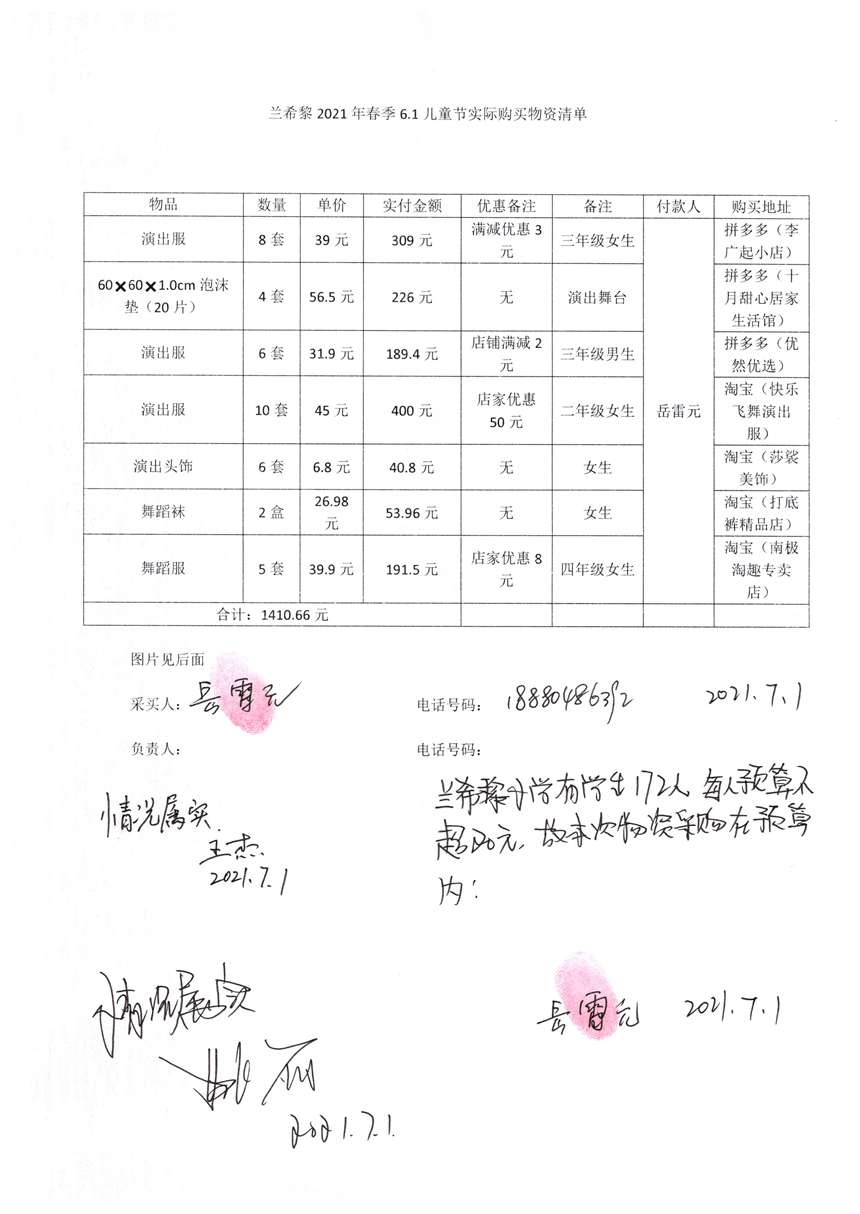 兰希黎 2021 年春季 6.1 儿童节实际购买物资清单
物品 数量 单价 实付金额 优惠备注 备注 付款人 购买地址
演出服 8 套 39 元 309 元 满减优惠 3 元 三年级女生 岳雷元 拼多多（李广起小店）
60✖60✖1.0cm 泡沫垫（20 片） 4 套 56.5 元 226 元 无 演出舞台 拼多多（十月甜心居家生活馆）
演出服 6 套 31.9 元 189.4 元 店铺满减 2 元 三年级男生 拼多多（优然优选）
演出服 10 套 45 元 400 元 店家优惠 50 元 二年级女生 淘宝（快乐飞舞演出服）
演出头饰 6 套 6.8 元 40.8 元 无 女生 淘宝（莎裳美饰）
舞蹈袜 2 盒 26.98 元 53.96 元 无 女生 淘宝（打底裤精品店）
舞蹈服 5 套 39.9 元 191.5 元 店家优惠 8 元 四年级女生 淘宝（南极淘趣专卖店）
合计：1410.66 元
图片见后面
采买人：岳雷元 电话号码： 2021.7.1
负责人： 电话号码：
兰希黎小学有学生172人，每人预算不
超20元，故本次物资采购在预算
内！
情况属实.
王杰
2021.7.1
情况属实
岳雷元 2021.7.1
2021.7.1.